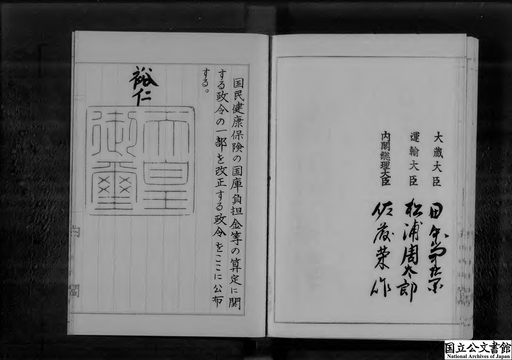 大蔵大臣 田中角栄
運輸大臣 松浦周太郎
内閣総理大臣 佐藤栄作
国民健康保険の国庫負担金等の算定に関
する政令の一部を改正する政令をここに公布
する。
裕仁
天皇
御璽
国立公文書館
National Archives of Japan